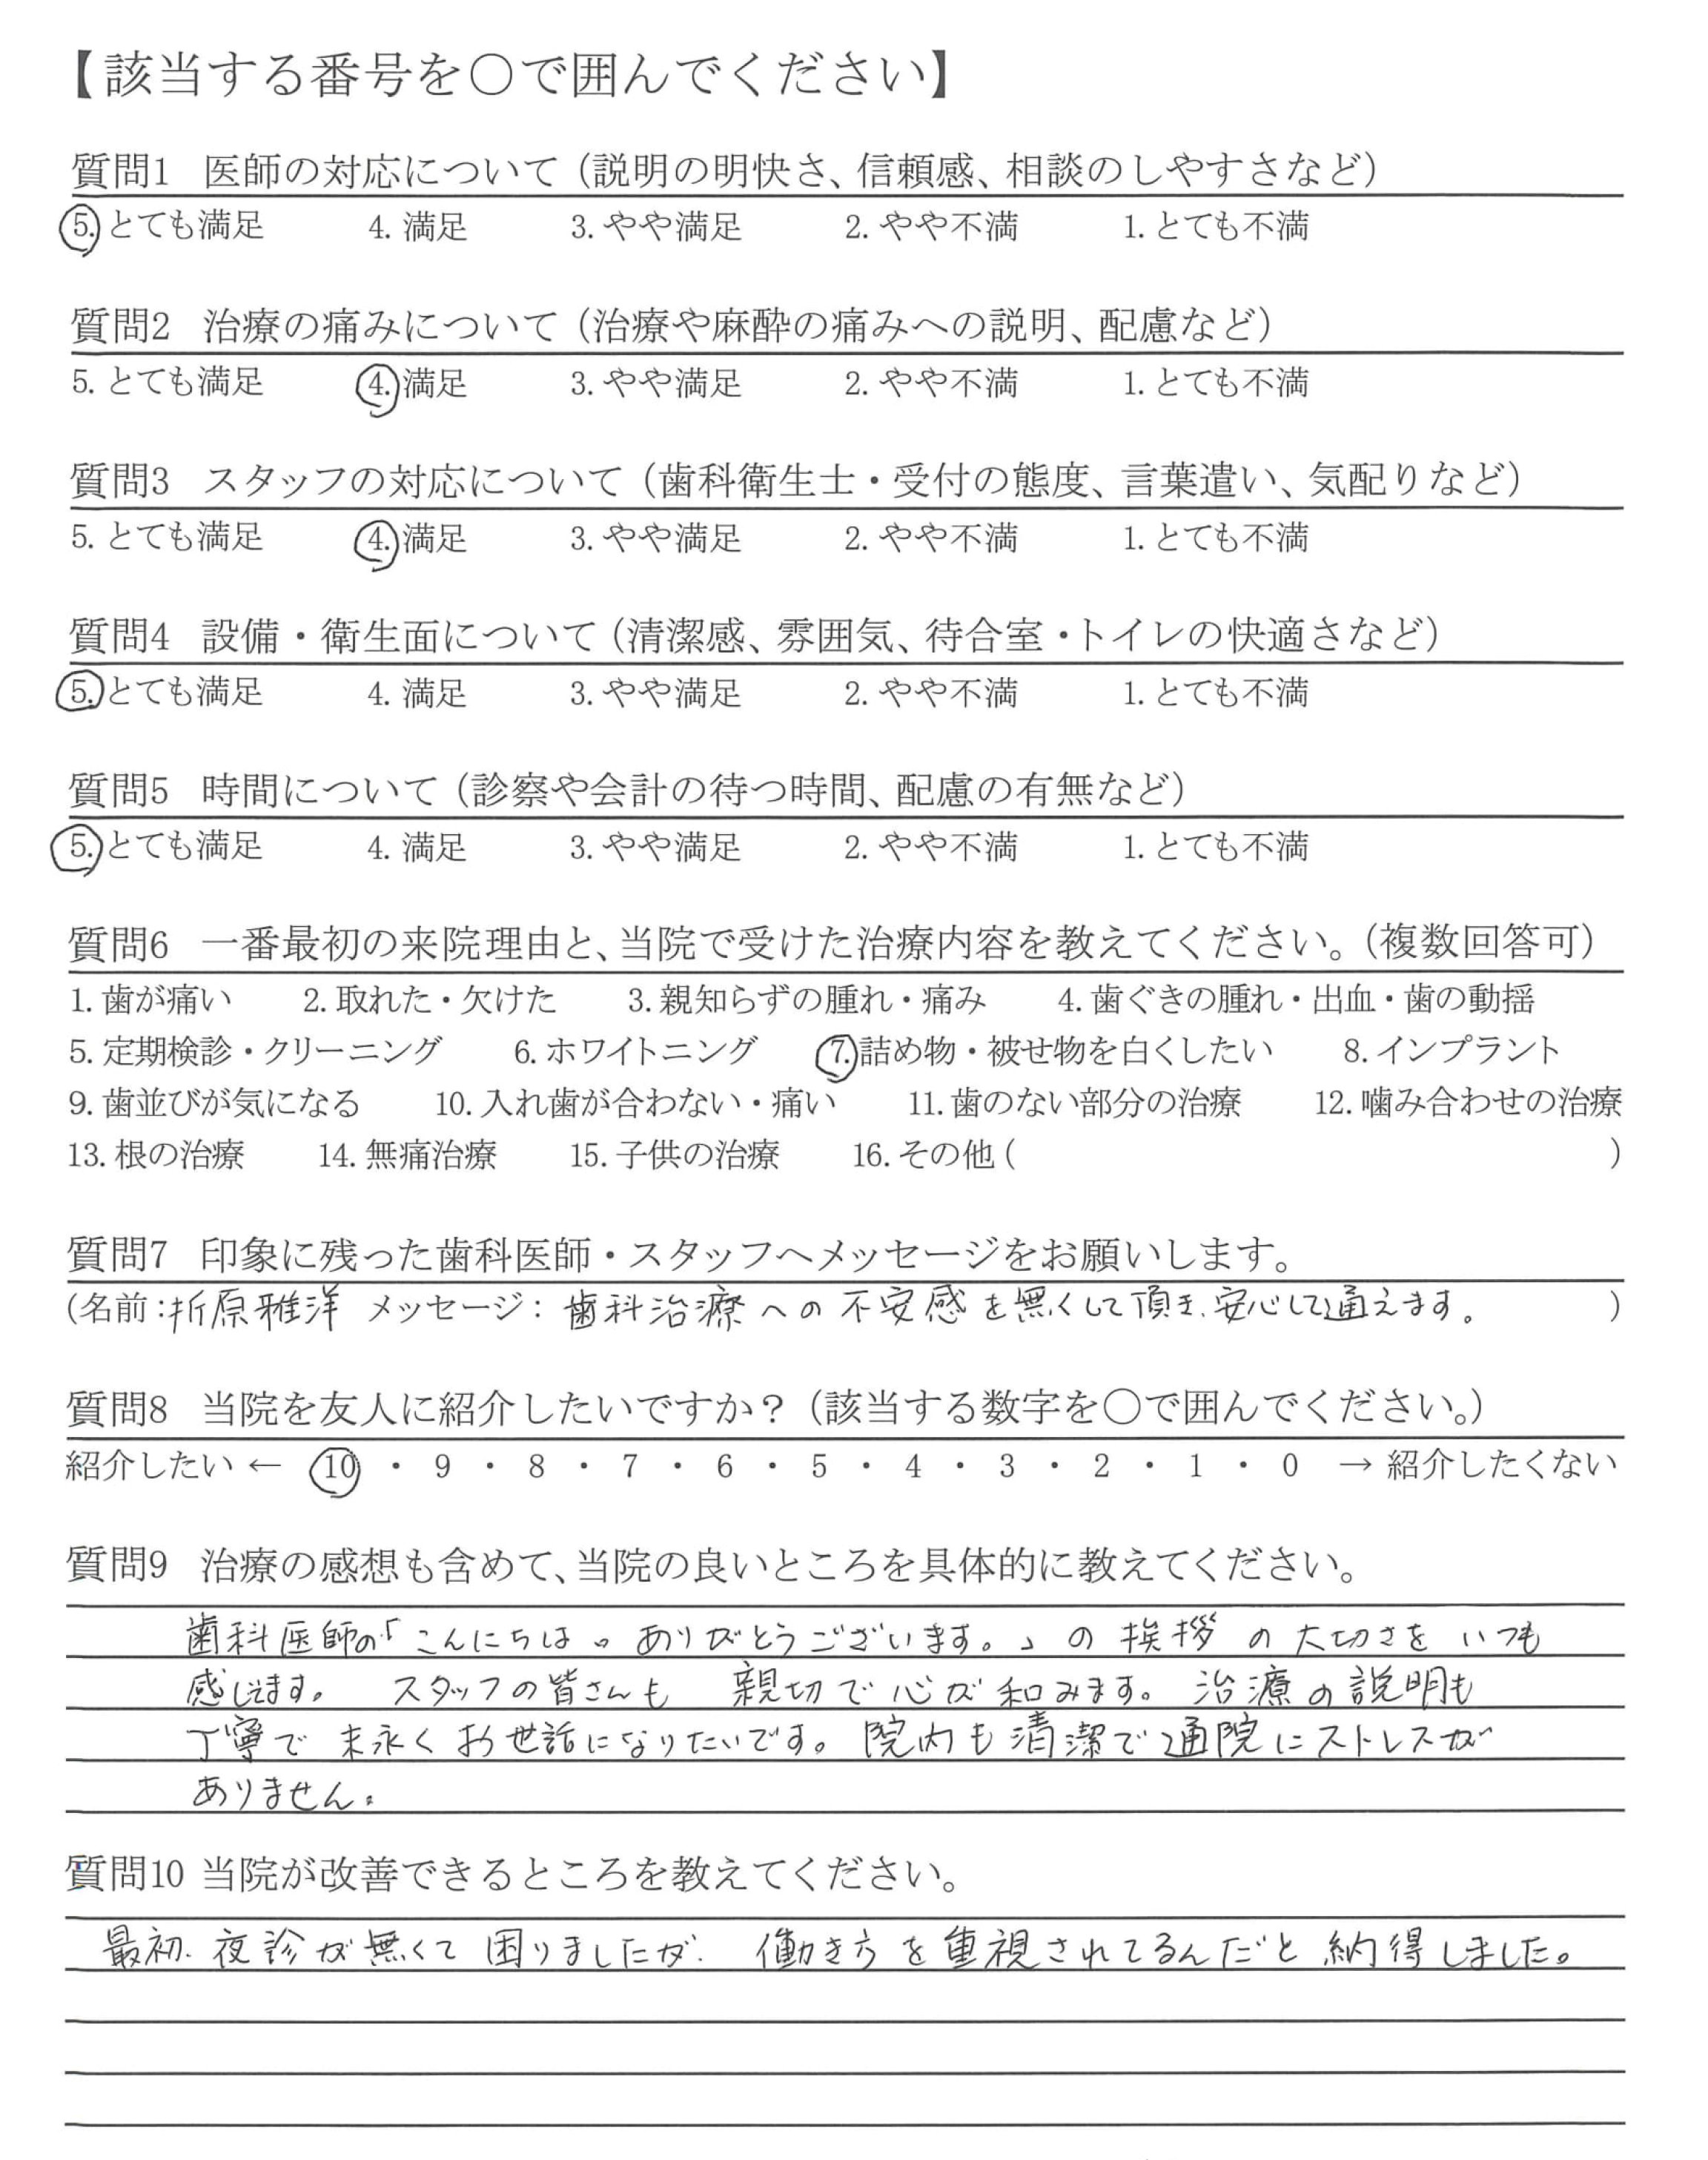 【該当する番号を〇で囲んでください】
質問1 医師の対応について（説明の明快さ、信頼感、相談のしやすさなど）
5. とても満足 4. 満足 3. やや満足 2. やや不満 1. とても不満
質問2 治療の痛みについて（治療や麻酔の痛みへの説明、配慮など）
5. とても満足 4. 満足 3. やや満足 2. やや不満 1. とても不満
質問3 スタッフの対応について（歯科衛生士・受付の態度、言葉遣い、気配りなど）
5. とても満足 4. 満足 3. やや満足 2. やや不満 1. とても不満
質問4 設備・衛生面について（清潔感、雰囲気、待合室・トイレの快適さなど）
5. とても満足 4. 満足 3. やや満足 2. やや不満 1. とても不満
質問5 時間について（診察や会計の待つ時間、配慮の有無など）
5. とても満足 4. 満足 3. やや満足 2. やや不満 1. とても不満
質問6 一番最初の来院理由と、当院で受けた治療内容を教えてください。（複数回答可）
1. 歯が痛い 2. 取れた・欠けた 3. 親知らずの腫れ・痛み 4. 歯ぐきの腫れ・出血・歯の動揺
5. 定期検診・クリーニング 6. ホワイトニング 7. 詰め物・被せ物を白くしたい 8. インプラント
9. 歯並びが気になる 10. 入れ歯が合わない・痛い 11. 歯のない部分の治療 12. 噛み合わせの治療
13. 根の治療 14. 無痛治療 15. 子供の治療 16. その他 ( )
質問7 印象に残った歯科医師・スタッフへメッセージをお願いします。
（名前：折原雅洋 メッセージ：歯科治療への不安感を無くして頂き、安心して通えます。 ）
質問8 当院を友人に紹介したいですか？（該当する数字を〇で囲んでください。）
紹介したい ← 10 ・ 9 ・ 8 ・ 7 ・ 6 ・ 5 ・ 4 ・ 3 ・ 2 ・ 1 ・ 0 → 紹介したくない
質問9 治療の感想も含めて、当院の良いところを具体的に教えてください。
歯科医師の「こんにちは。ありがとうございます。」の挨拶の大切さをいつも
感じます。 スタッフの皆さんも 親切で心が和みます。治療の説明も
丁寧で末永くお世話になりたいです。院内も清潔で通院にストレスが
ありません。
質問10 当院が改善できるところを教えてください。
最初、夜診が無くて困りましたが、働き方を重視されてるんだと納得しました。